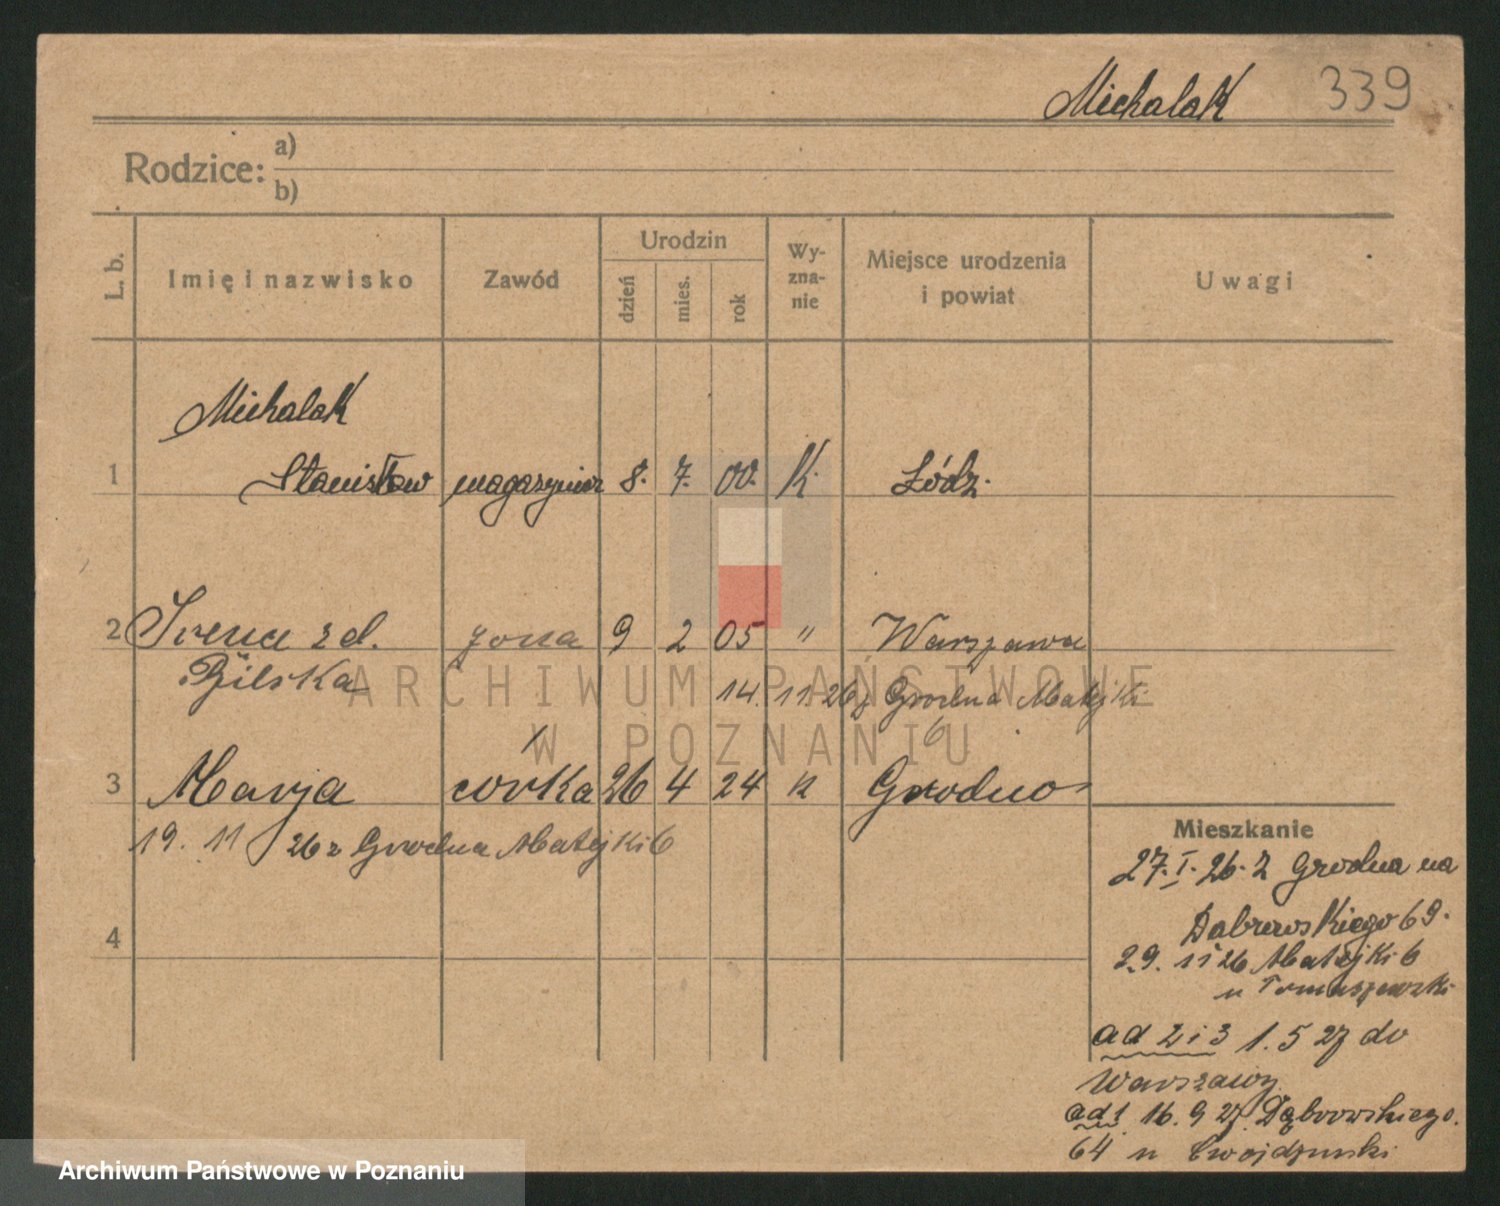 Michalak 339
Rodzice: a)
b)
L. b. Imię i nazwisko Zawód Urodzin dzień mies. rok Wy-zna-nie Miejsce urodzenia i powiat Uwagi
Michalak
1 Stanisław magazynier 8. 7. 00. K. Łódź.
2 Irena z d. żona 9 2 05 " Warszawa
Bilska 14. 11. 26 z Grodna Matejki
6
x
3 Marja corka 26 4 24 k Grodno
19. 11 26 z Grodna Matejki 6
4
Mieszkanie
27. I. 26. z Grodna na
Dabrowskiego 69.
29. 11 26 Matejki 6
u Tomaszewski
ad 2 i 3 1. 5 27 do
Warszawy
ad 1 16. 9 27. Dąbrowskiego.
64 u
ARCHIWUM PAŃSTWOWE
W POZNANIU
Archiwum Państwowe w Poznaniu